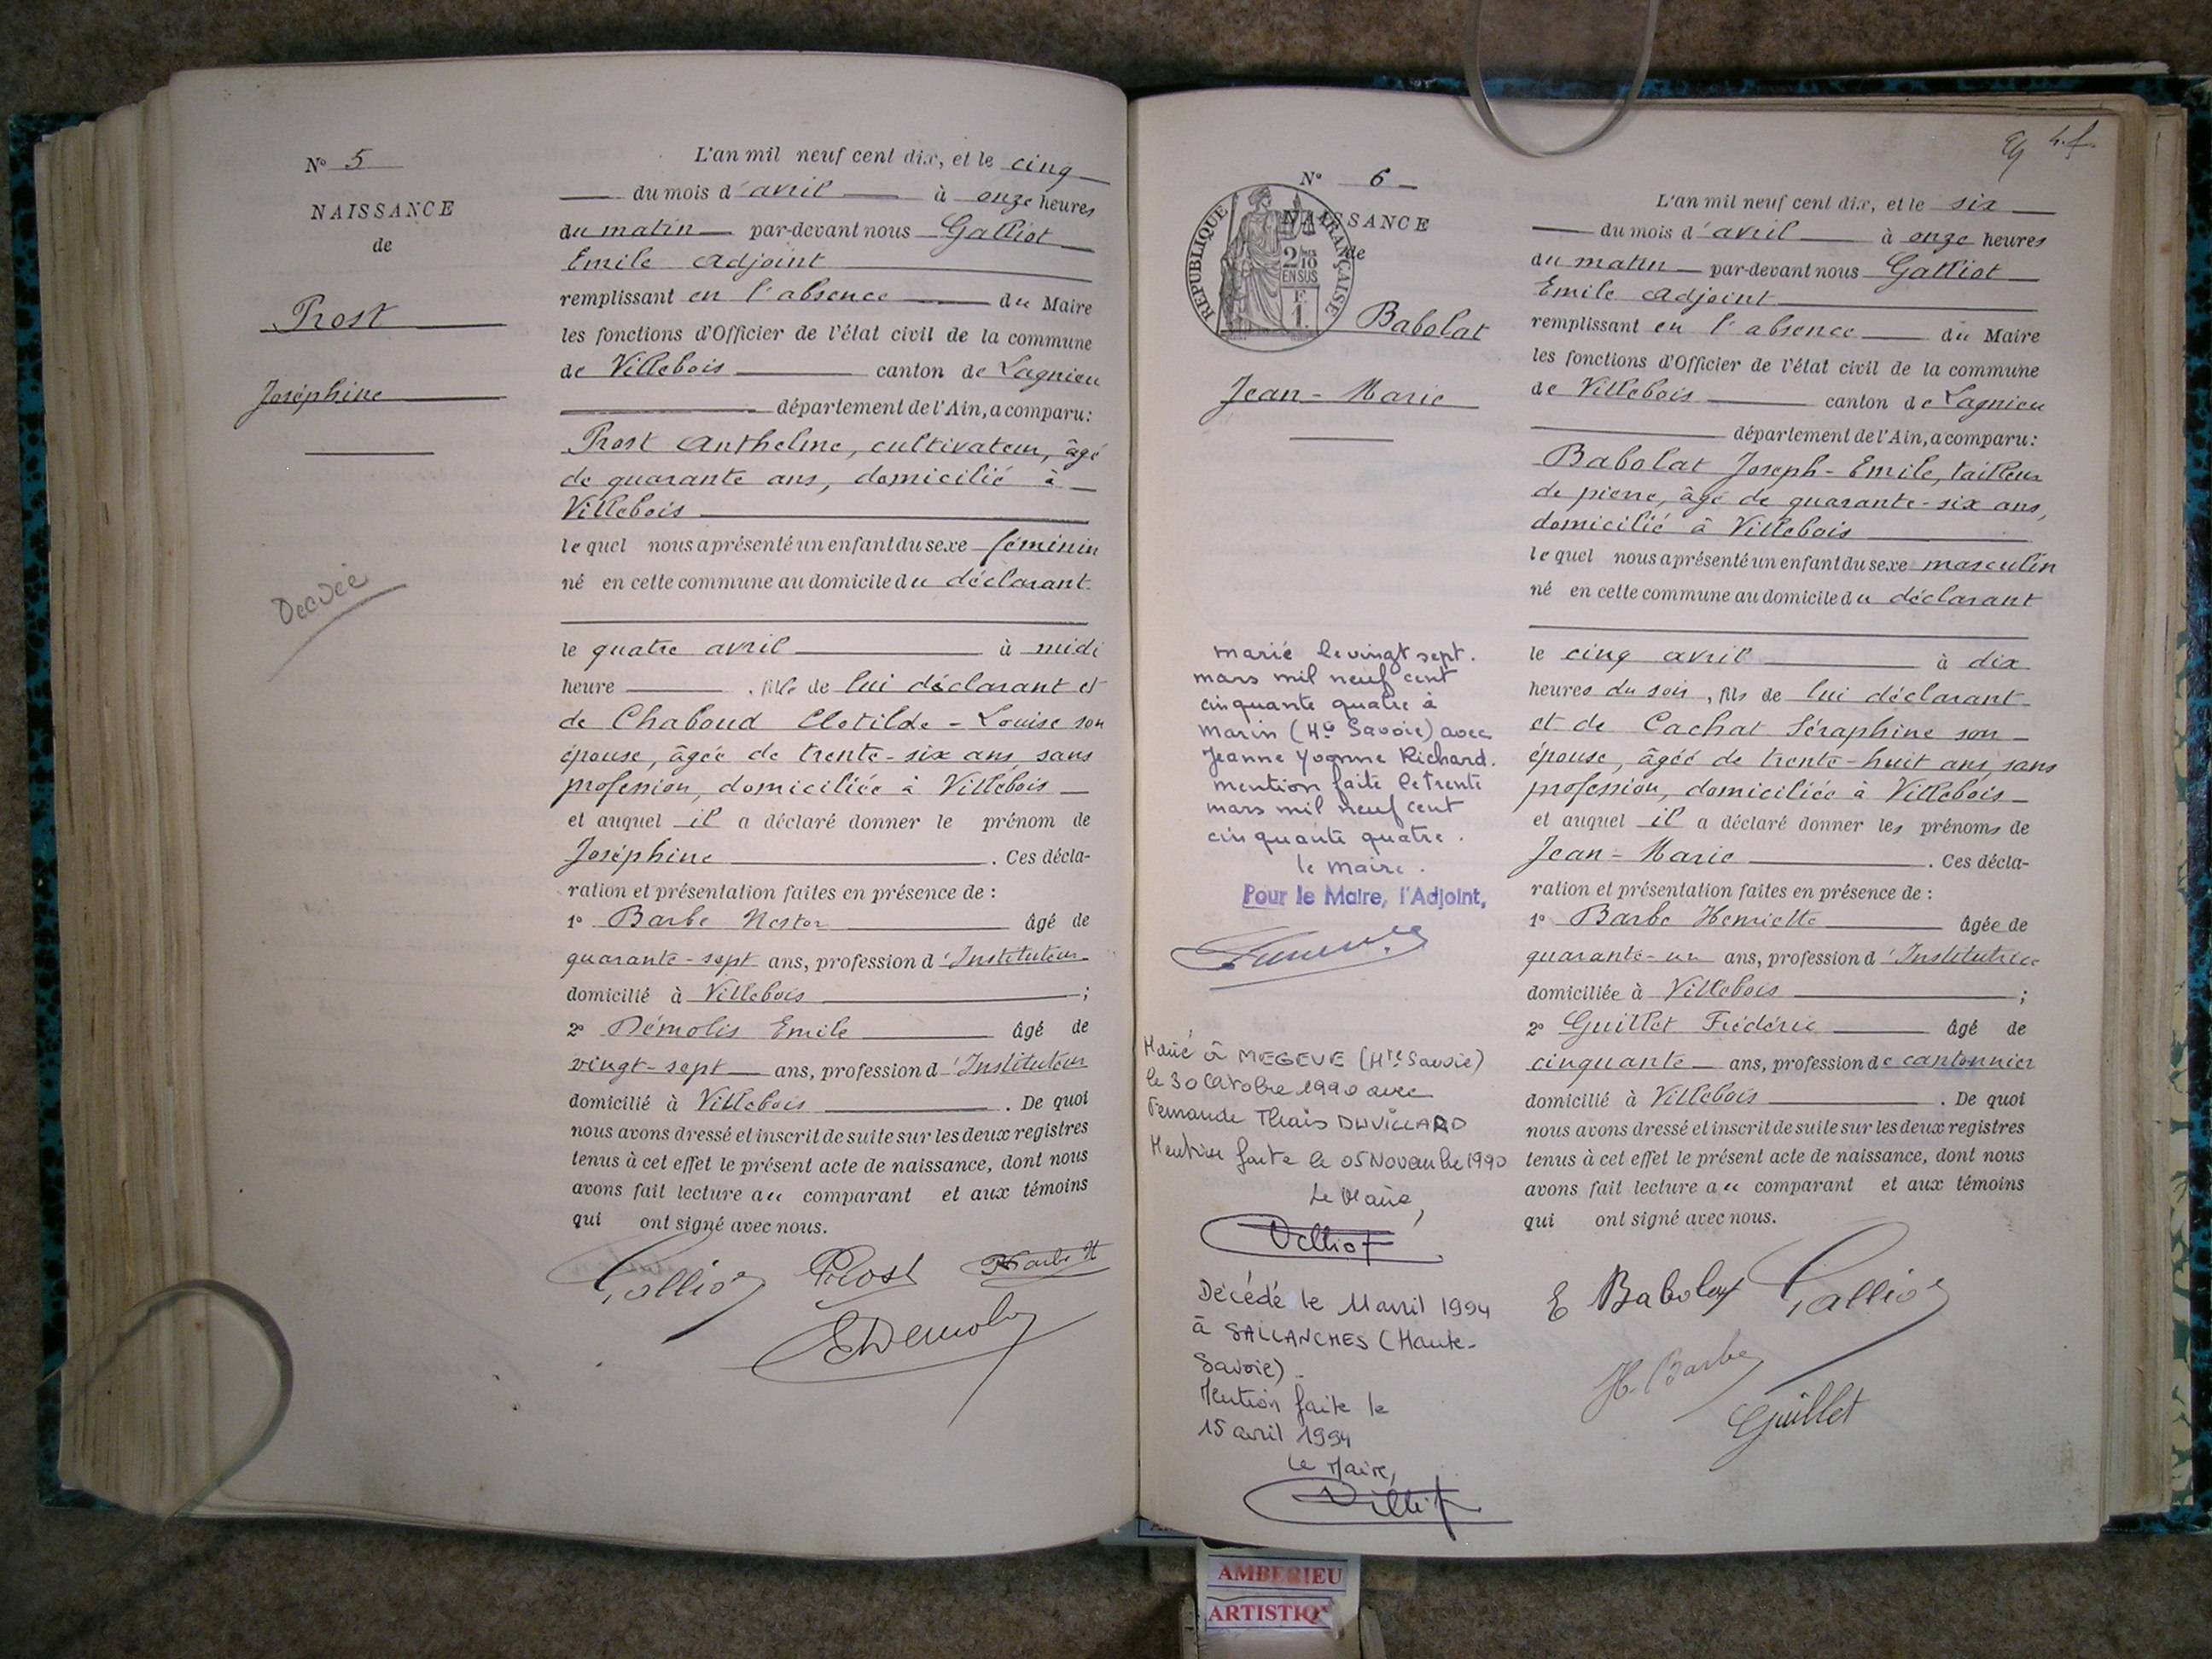 N° 5
NAISSANCE
de
Prost
Joséphine
Décédée
L'an mil neuf cent dix, et le cinq
du mois d'avril à onze heures
du matin par-devant nous Galliot
Emile adjoint
remplissant en l'absence du Maire
les fonctions d'Officier de l'état civil de la commune
de Villebois canton de Lagnieu
département de l'Ain, a comparu:
Prost Anthelme, cultivateur, âgé
de quarante ans, domicilié à
Villebois
lequel nous a présenté un enfant du sexe féminin
né en cette commune au domicile du déclarant
le quatre avril à midi
heure , fille de lui déclarant et
de Chaboud Clotilde-Louise son
épouse, âgée de trente-six ans, sans
profession, domiciliée à Villebois
et auquel il a déclaré donner le prénom de
Joséphine . Ces décla-
ration et présentation faites en présence de :
1° Barbe Nestor âgé de
quarante-sept ans, profession d'Instituteur
domicilié à Villebois ;
2° Démolis Emile âgé de
vingt-sept ans, profession d'Instituteur
domicilié à Villebois . De quoi
nous avons dressé et inscrit de suite sur les deux registres
tenus à cet effet le présent acte de naissance, dont nous
avons fait lecture au comparant et aux témoins
qui ont signé avec nous.
Galliot Prost Barbe N
E Demolis
4 f.
N° 6
NAISSANCE
de
REPUBLIQUE FRANÇAISE
2/10
EN SUS
F.
1.
Babolat
Jean-Marie
marié le vingt sept.
mars mil neuf cent
cinquante quatre à
Marin (Hte Savoie) avec
Jeanne Yvonne Richard.
mention faite le trente
mars mil neuf cent
cinquante quatre.
le maire.
Pour le Maire, l'Adjoint,
Marié à MEGEVE (Hte Savoie)
le 30 Octobre 1990 avec
Fernande Thaïs DUVILLARD
Mention faite le 05 Novembre 1990
Le Maire,
Décédé le 11 avril 1994
à SALLANCHES (Haute-
Savoie).
Mention faite le
15 avril 1994
Le Maire,
L'an mil neuf cent dix, et le six
du mois d'avril à onze heures
du matin par-devant nous Galliot
Emile adjoint
remplissant en l'absence du Maire
les fonctions d'Officier de l'état civil de la commune
de Villebois canton de Lagnieu
département de l'Ain, a comparu:
Babolat Joseph-Emile, tailleur
de pierre, âgé de quarante-six ans,
domicilié à Villebois
lequel nous a présenté un enfant du sexe masculin
né en cette commune au domicile du déclarant
le cinq avril à dix
heures du soir, fils de lui déclarant
et de Cachat Séraphine son
épouse, âgée de trente-huit ans, sans
profession, domiciliée à Villebois
et auquel il a déclaré donner les prénoms de
Jean-Marie . Ces décla-
ration et présentation faites en présence de :
1° Barbe Henriette âgée de
quarante-un ans, profession d'Institutrice
domiciliée à Villebois ;
2° Guillet Frédéric âgé de
cinquante ans, profession de cantonnier
domicilié à Villebois . De quoi
nous avons dressé et inscrit de suite sur les deux registres
tenus à cet effet le présent acte de naissance, dont nous
avons fait lecture au comparant et aux témoins
qui ont signé avec nous.
E Babolat Galliot
H. Barbe
Guillet
AMBERIEU
ARTISTIQ